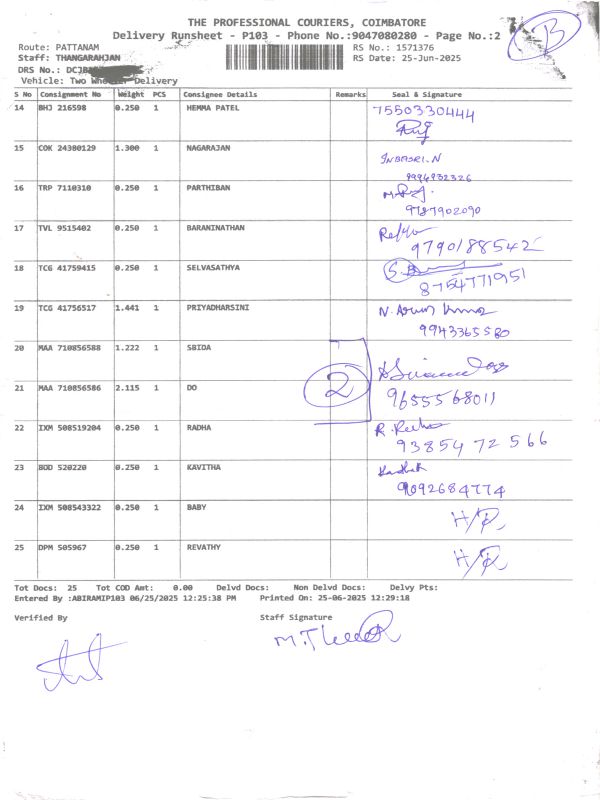 THE PROFESSIONAL COURIERS, COIMBATORE
Delivery Runsheet - P103 - Phone No.:9047080280 - Page No.:2
B
Route: PATTANAM RS No.: 1571376
Staff: THANGARAHJAN RS Date: 25-Jun-2025
DRS No.:
Vehicle: Two Wheeler Delivery
S No Consignment No Weight PCS Consignee Details Remarks Seal & Signature
14 BHJ 216598 0.250 1 HEMMA PATEL 7550330444
15 COK 24380129 1.300 1 NAGARAJAN INBASRI.N
9994932326
16 TRP 7110310 0.250 1 PARTHIBAN
9787902090
17 TVL 9515402 0.250 1 BARANINATHAN
9790188542
18 TCG 41759415 0.250 1 SELVASATHYA
8754771951
19 TCG 41756517 1.441 1 PRIYADHARSINI N. Arun Kumar
9943365580
20 MAA 710856588 1.222 1 SBIDA
2
21 MAA 710856586 2.115 1 DO 9655568011
22 IXM 508519204 0.250 1 RADHA R. Radha
93854 72 566
23 BOD 520220 0.250 1 KAVITHA
9092684774
24 IXM 508543322 0.250 1 BABY
25 DPM 505967 0.250 1 REVATHY
Tot Docs: 25 Tot COD Amt: 0.00 Delvd Docs: Non Delvd Docs: Delvy Pts:
Entered By :ABIRAMIP103 06/25/2025 12:25:38 PM Printed On: 25-06-2025 12:29:18
Verified By Staff Signature